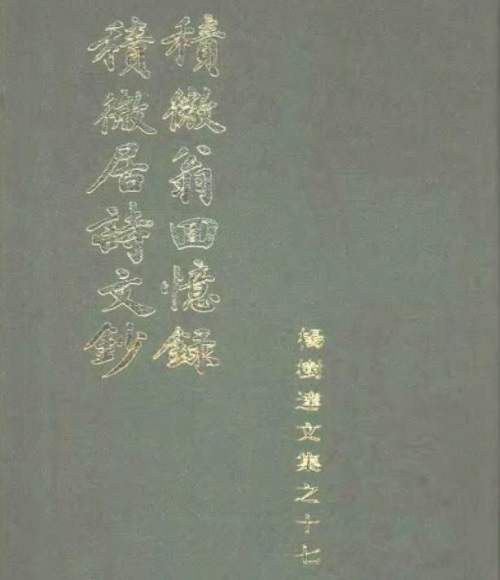 積微翁回憶錄
積微居詩文鈔
楊樹達文集之十七